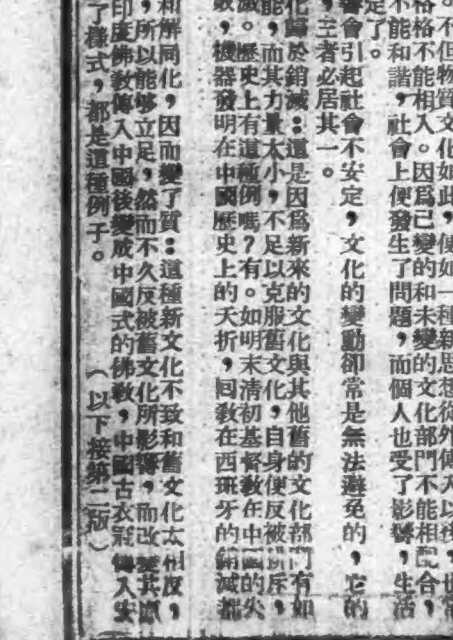 。不但物質文化如此，便如一種新思想從外傳入以後，也常
格格不能相入。因爲已變的和未變的文化部門不能相配合，
不能和諧，社會上便發生了問題，而個人也受了影響，生活
定了。
會引起社會不安定，文化的變動卻常是無法避免的，它的
，三者必居其一。
化歸於銷滅：這是因爲新來的文化與其他舊的文化部門有如
能，而其力量太小，不足以克服舊文化，自身便反被排斥，
滅。歷史上有這種例嗎？有。如明末清初基督教在中國的失
敗，機器發明在中國歷史上的夭折，回教在西班牙的銷滅都
和解同化，因而變了質：這種新文化不致和舊文化太相反，
，所以能够立足，然而不久反被舊文化所影響，而改變其原
印度佛教傳入中國後變成中國式的佛教，中國古衣冠傳入
了樣式，都是這種例子。（以下接第二版）